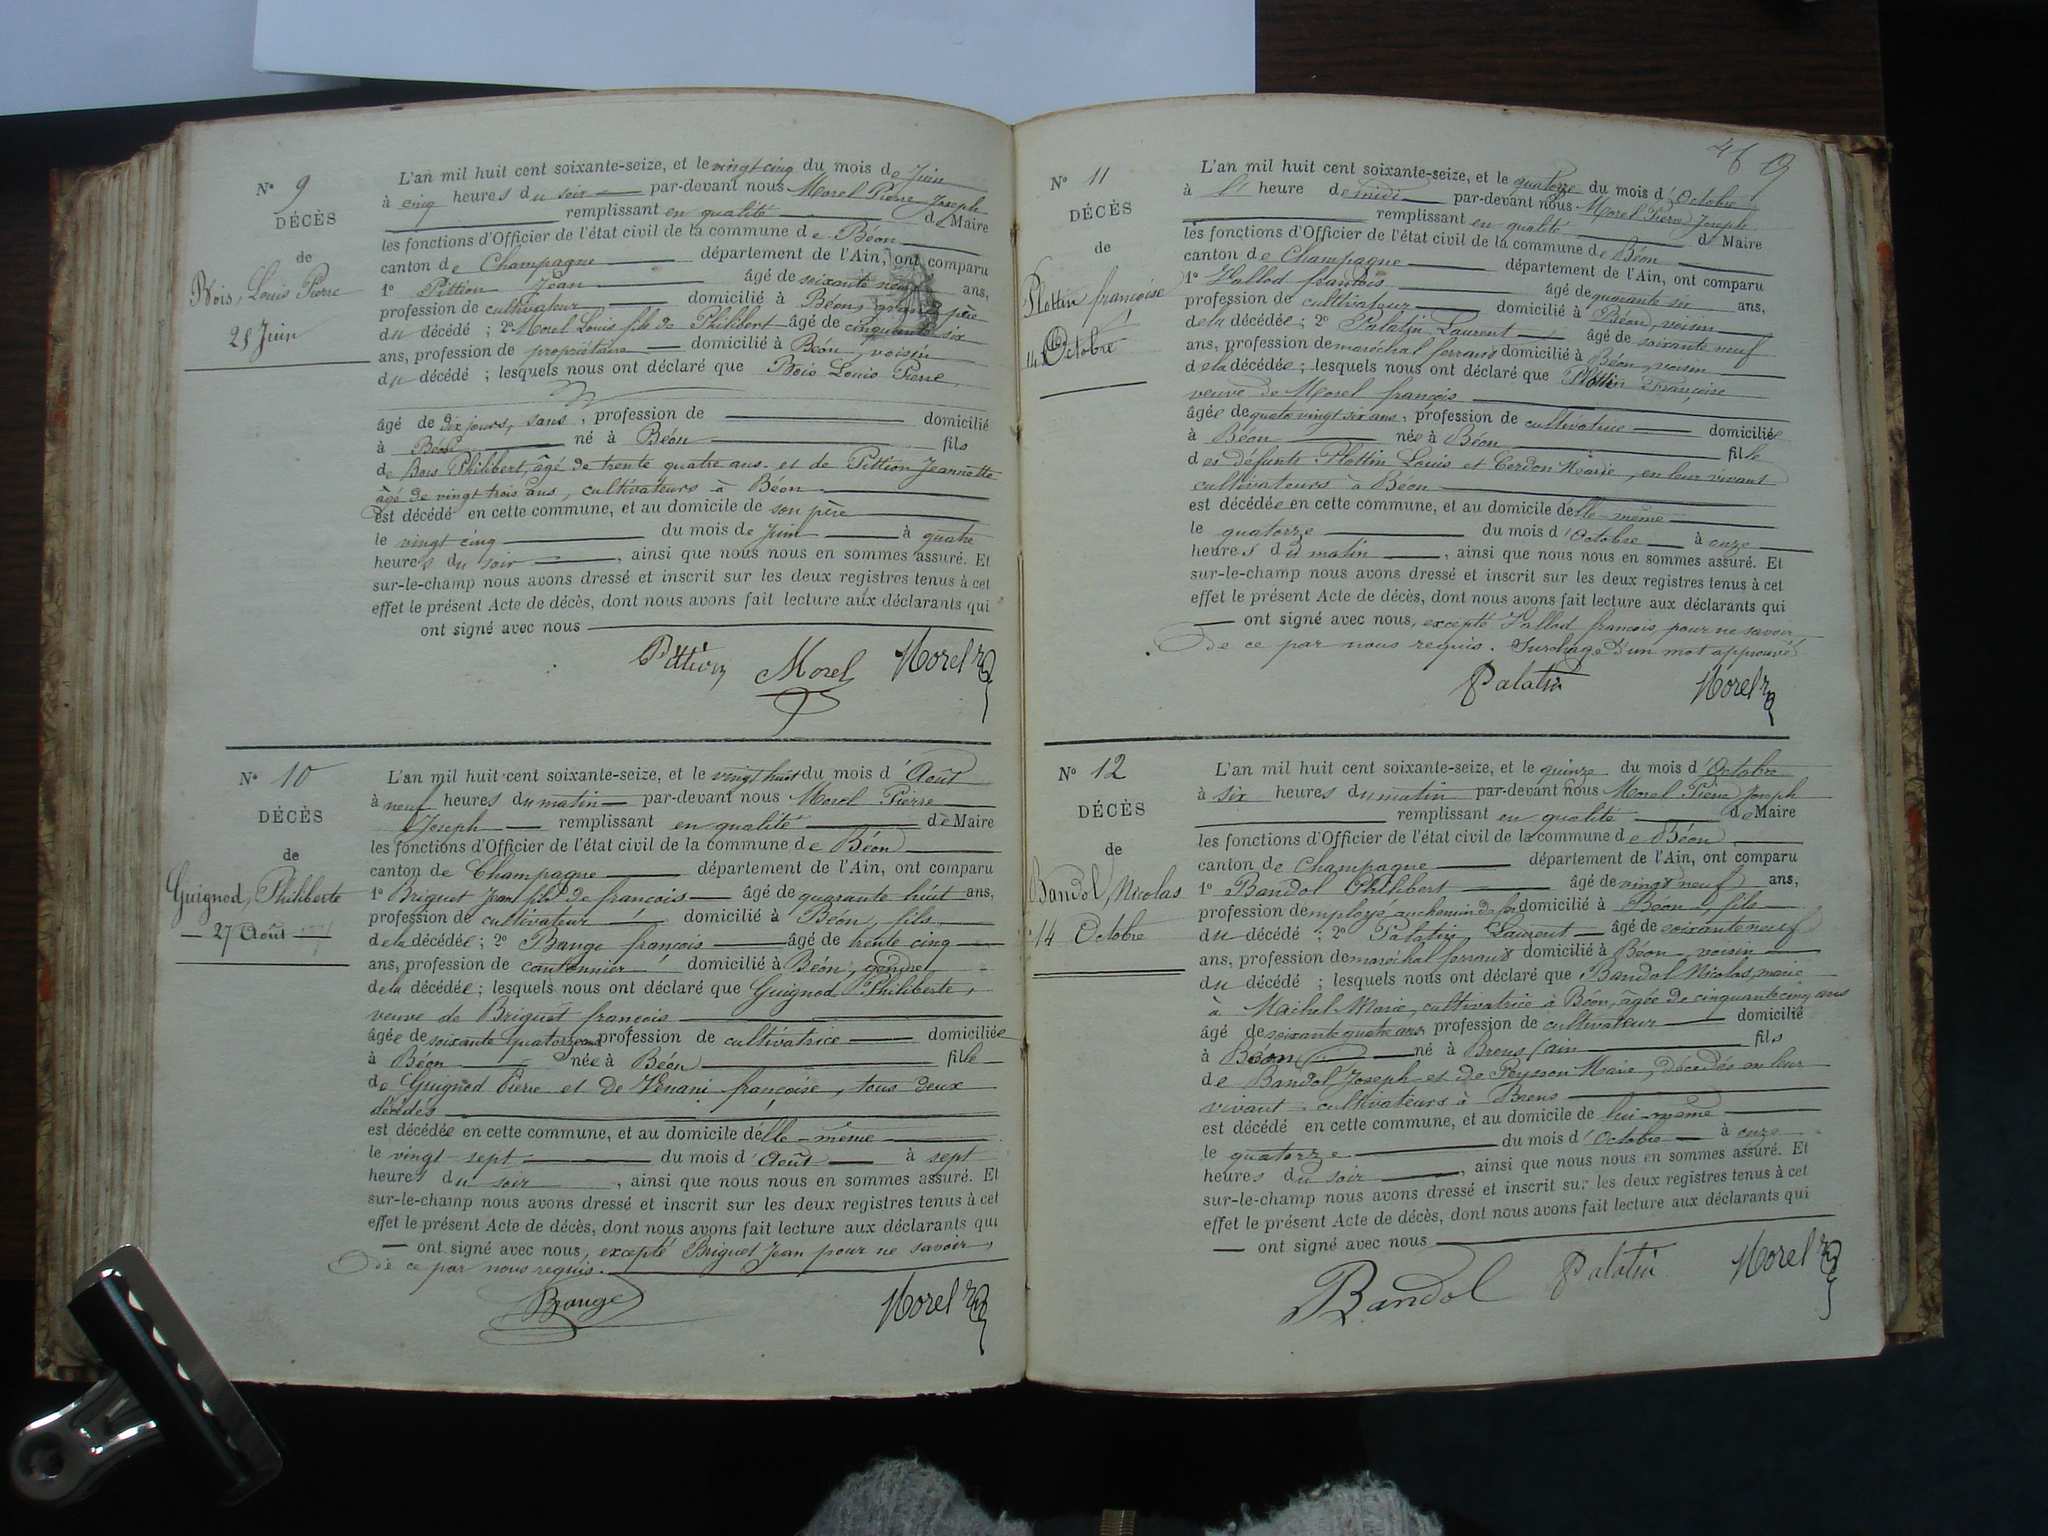 N° 9
DÉCÈS
de
Bois, Louis Pierre
25 Juin
L'an mil huit cent soixante-seize, et le vingt cinq du mois de Juin
à cinq heures du soir par-devant nous Morel Pierre Joseph
remplissant en qualité de Maire
les fonctions d'Officier de l'état civil de la commune de Béon
canton de Champagne département de l'Ain, ont comparu
1° Pittion Jean âgé de soixante neuf ans,
profession de cultivateur domicilié à Béon, grand père
du décédé ; 2° Morel Louis fils de Philibert âgé de cinquante six
ans, profession de propriétaire domicilié à Béon, voisin
du décédé ; lesquels nous ont déclaré que Bois Louis Pierre
âgé de dix jours, sans, profession de domicilié
à Béon né à Béon fils
de Bois Philibert, âgé de trente quatre ans et de Pittion Jeannette
âgé de vingt trois ans, cultivateurs à Béon
est décédé en cette commune, et au domicile de son père
le vingt cinq du mois de Juin à quatre
heures du soir, ainsi que nous nous en sommes assuré. Et
sur-le-champ nous avons dressé et inscrit sur les deux registres tenus à cet
effet le présent Acte de décès, dont nous avons fait lecture aux déclarants qui
ont signé avec nous
Pittion Morel Morel
N° 10
DÉCÈS
de
Guignod, Philiberte
27 Août
L'an mil huit cent soixante-seize, et le vingt huit du mois d'Août
à neuf heures du matin par-devant nous Morel Pierre
Joseph remplissant en qualité de Maire
les fonctions d'Officier de l'état civil de la commune de Béon
canton de Champagne département de l'Ain, ont comparu
1° Briguet Jean fils de françois âgé de quarante huit ans,
profession de cultivateur domicilié à Béon, fils
de la décédée ; 2° Bange françois âgé de trente cinq
ans, profession de cantonnier domicilié à Béon, gendre
de la décédée ; lesquels nous ont déclaré que Guignod Philiberte,
veuve de Briguet françois
âgée de soixante quatorze ans profession de cultivatrice domiciliée
à Béon née à Béon fille
de Guignod Pierre et de Venani françoise, tous deux
décédés
est décédée en cette commune, et au domicile d'elle-même
le vingt-sept du mois d'Août à sept
heures du soir, ainsi que nous nous en sommes assuré. Et
sur-le-champ nous avons dressé et inscrit sur les deux registres tenus à cet
effet le présent Acte de décès, dont nous avons fait lecture aux déclarants qui
ont signé avec nous, excepté Briguet Jean pour ne savoir,
de ce par nous requis.
Bange Morel
N° 11
DÉCÈS
de
Plottin françoise
14 Octobre
L'an mil huit cent soixante-seize, et le quatorze du mois d'Octobre
à l' heure de midi par-devant nous Morel Pierre Joseph
remplissant en qualité de Maire
les fonctions d'Officier de l'état civil de la commune de Béon
canton de Champagne département de l'Ain, ont comparu
1° Vallod françois âgé de quarante six ans,
profession de cultivateur domicilié à Béon, voisin
de la décédée ; 2° Palatin Laurent âgé de soixante neuf
ans, profession de maréchal ferrant domicilié à Béon, voisin
de la décédée ; lesquels nous ont déclaré que Plottin Françoise
veuve de Morel françois
âgée de quate vingt six ans, profession de cultivatrice domiciliée
à Béon née à Béon fille
des défunts Plottin Louis et Cerdon Marie, en leur vivant
cultivateurs à Béon
est décédée en cette commune, et au domicile d'elle-même
le quatorze du mois d'Octobre à onze
heures du matin, ainsi que nous nous en sommes assuré. Et
sur-le-champ nous avons dressé et inscrit sur les deux registres tenus à cet
effet le présent Acte de décès, dont nous avons fait lecture aux déclarants qui
ont signé avec nous, excepté Vallod francois pour ne savoir
de ce par nous requis. Surchage d'un mot approuvé
Palatin Morel
N° 12
DÉCÈS
de
Bandol, Nicolas
14 Octobre
L'an mil huit cent soixante-seize, et le quinze du mois d'Octobre
à six heures du matin par-devant nous Morel Pierre Joseph
remplissant en qualité de Maire
les fonctions d'Officier de l'état civil de la commune de Béon
canton de Champagne département de l'Ain, ont comparu
1° Bandol Philibert âgé de vingt neuf ans,
profession d'employé au chemin de fer domicilié à Béon, fils
du décédé ; 2° Palatin, Laurent âgé de soixante neuf
ans, profession de maréchal ferrant domicilié à Béon, voisin
du décédé ; lesquels nous ont déclaré que Bandol Nicolas, marié
à Machel Marie, cultivatrice à Béon, âgée de cinquante cinq ans
âgé de soixante quatre ans profession de cultivateur domicilié
à Béon né à Brens (ain fils
de Bandol Joseph et de Peysson Marie, décédés en leur
vivant cultivateurs à Brens
est décédé en cette commune, et au domicile de lui-même
le quatorze du mois d'Octobre à onze
heures du soir, ainsi que nous nous en sommes assuré. Et
sur-le-champ nous avons dressé et inscrit sur les deux registres tenus à cet
effet le présent Acte de décès, dont nous avons fait lecture aux déclarants qui
ont signé avec nous
Bandol Palatin Morel